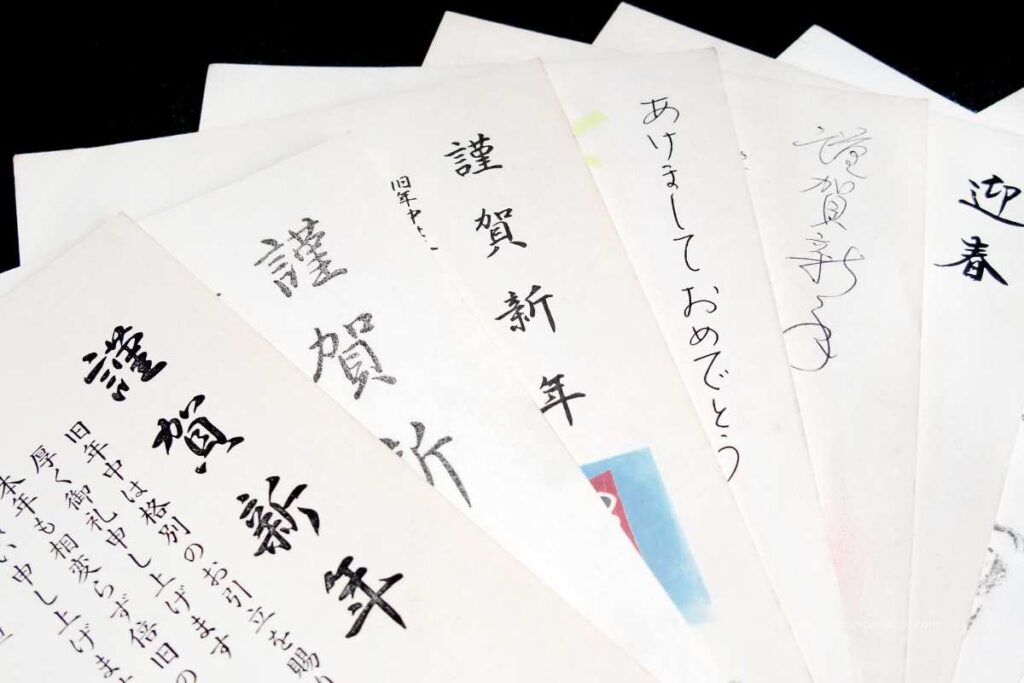 謹賀新年
旧年中は格別のお引立を賜
厚く御礼申し上げます
本年も相変らず倍旧の
い申し上げま
謹賀
謹賀新年
旧年中
あけましておめでとう
謹賀新年
迎春